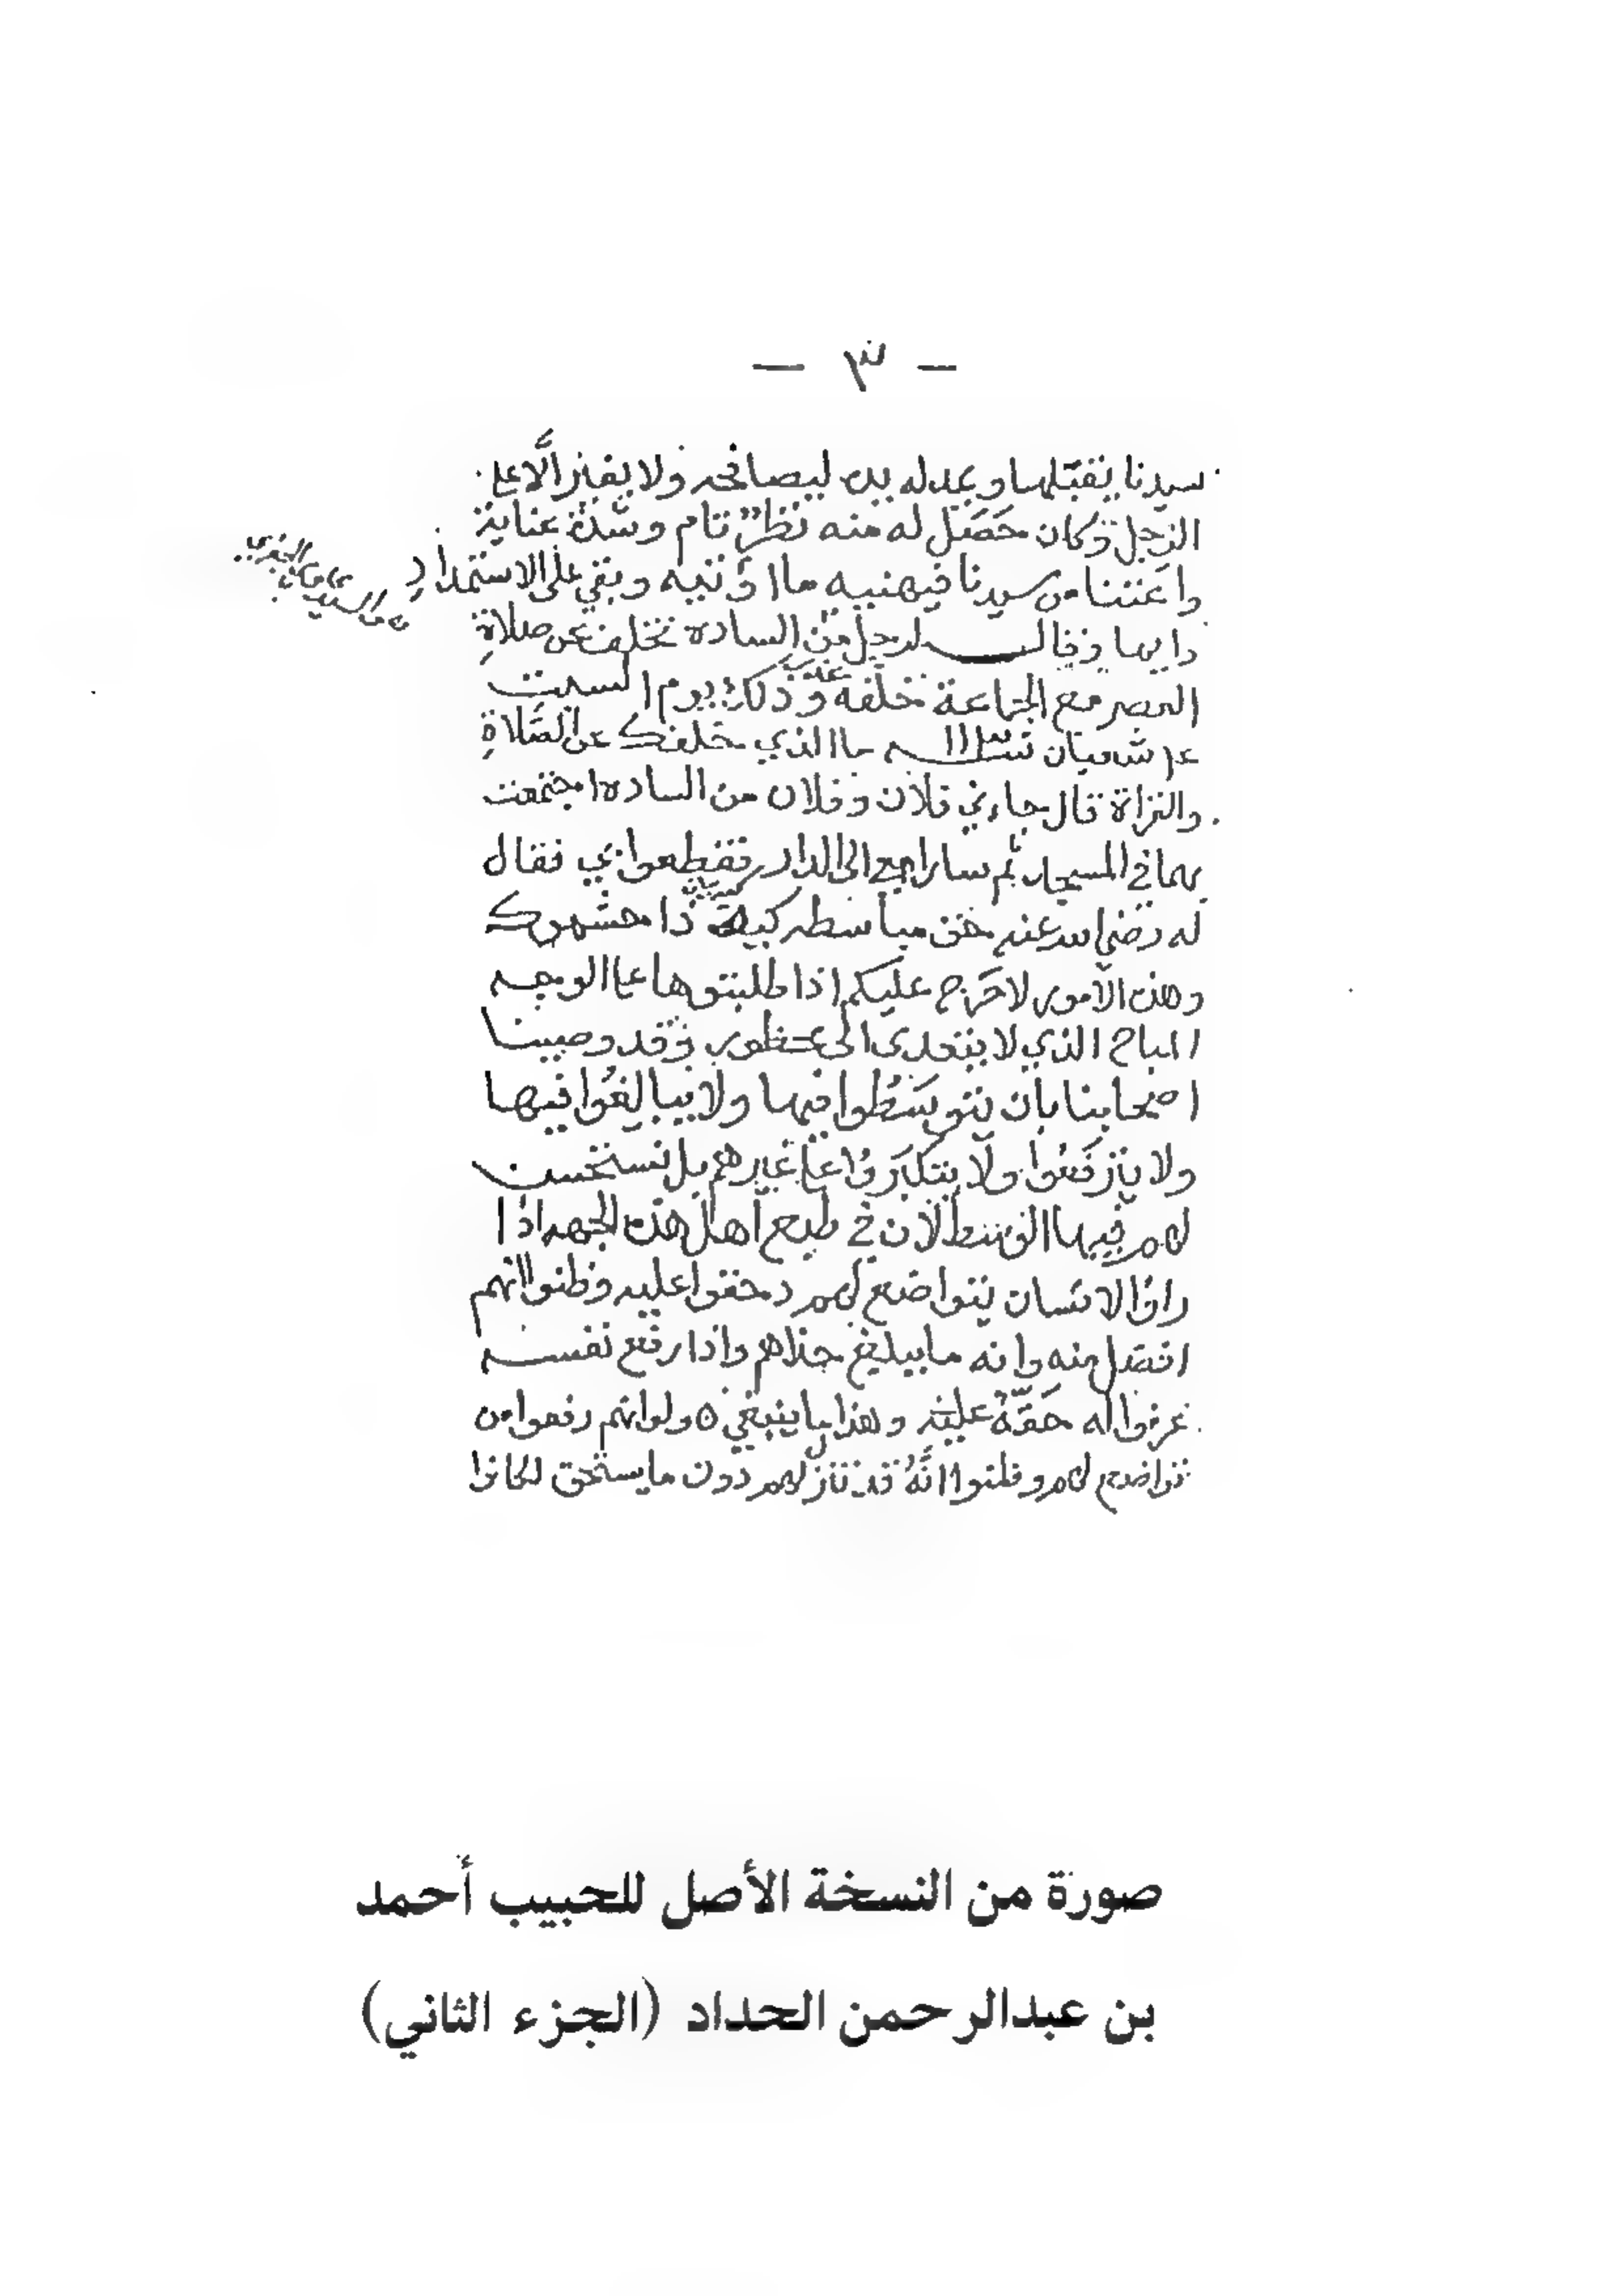 — ٣ —
سيدنا يقبلها ويمد له يده ليصافحه ولا يفتر إلا على
الرجل وكان حَصَل له منه نظرٌ تام وشدة عناية
واعتنا من سيدنا فيهنيه ما اوتيه وبقي على الاستمداد
دايما وقال لرجل من السادة تخلف عن صلاة
العصر مع الجماعة خلفه وذلك يوم السبت
شعبان ما الذي خلفك عن الصَّلاةِ
والقراة قال جاءني فلان وفلان من السادة اجتمعت
بهما في المسجد ثم سارا معي الى الدار فقطعوا بي فقال
له رضي الله عنه
وهذه الأمور لا حَرَج عليكم اذا طلبتوها على الوجه
المباح الذي لا يتعدى الى محظور وقد وصينا
اصحابنا بأن يتوسَّطُوا فيها ولا يبالِغُوا فيها
ولا يترفَّعُوا ولا يتكبَّرَوُا على غيرهم بل نستحسن
لهم فيها التوسط لأن في طبع أهل هذه الجهه اذا
راوا الانسان يتواضع لهم دحقوا عليه وظنوا انهم
افضل منه وانه ما يبلغ حذاهم واذا رفع نفسه
عرفوا له حَقَّهُ عليهم وهذا ما ينبغي ه ولو انهم رفعوا من
تواضع لهم وظنوا انَّهُ قد تنزل لهم دون ما يستحق لكانوا
صورة من النسخة الأصل للحبيب أحمد
بن عبدالرحمن الحداد (الجزء الثاني)